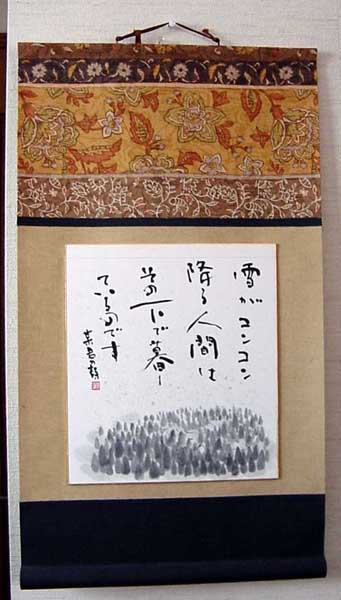 雪がコンコン
降る人間は
その下で暮し
ているのです